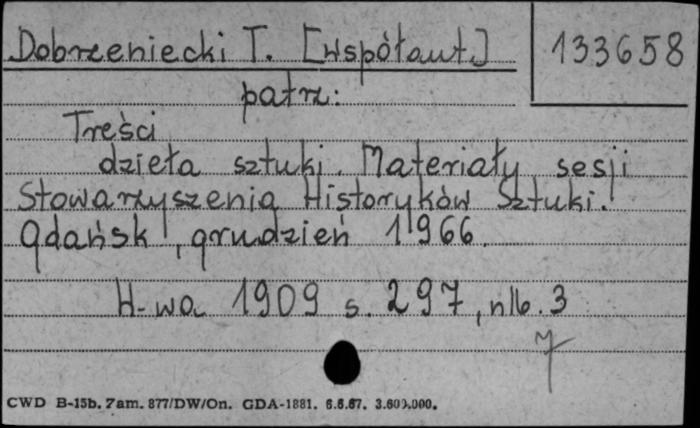 Dobrzeniecki T. [Współaut.]
133658
patrz:
Treści
dzieła sztuki. Materiały sesji
Stowarzyszenia Historyków Sztuki.
Gdańsk, grudzień 1966.
W-wa 1909 s. 297, nlb. 3
CWD B-15b. Zam. 877/DW/On. GDA-1881. 6.6.67. 3.600.000.